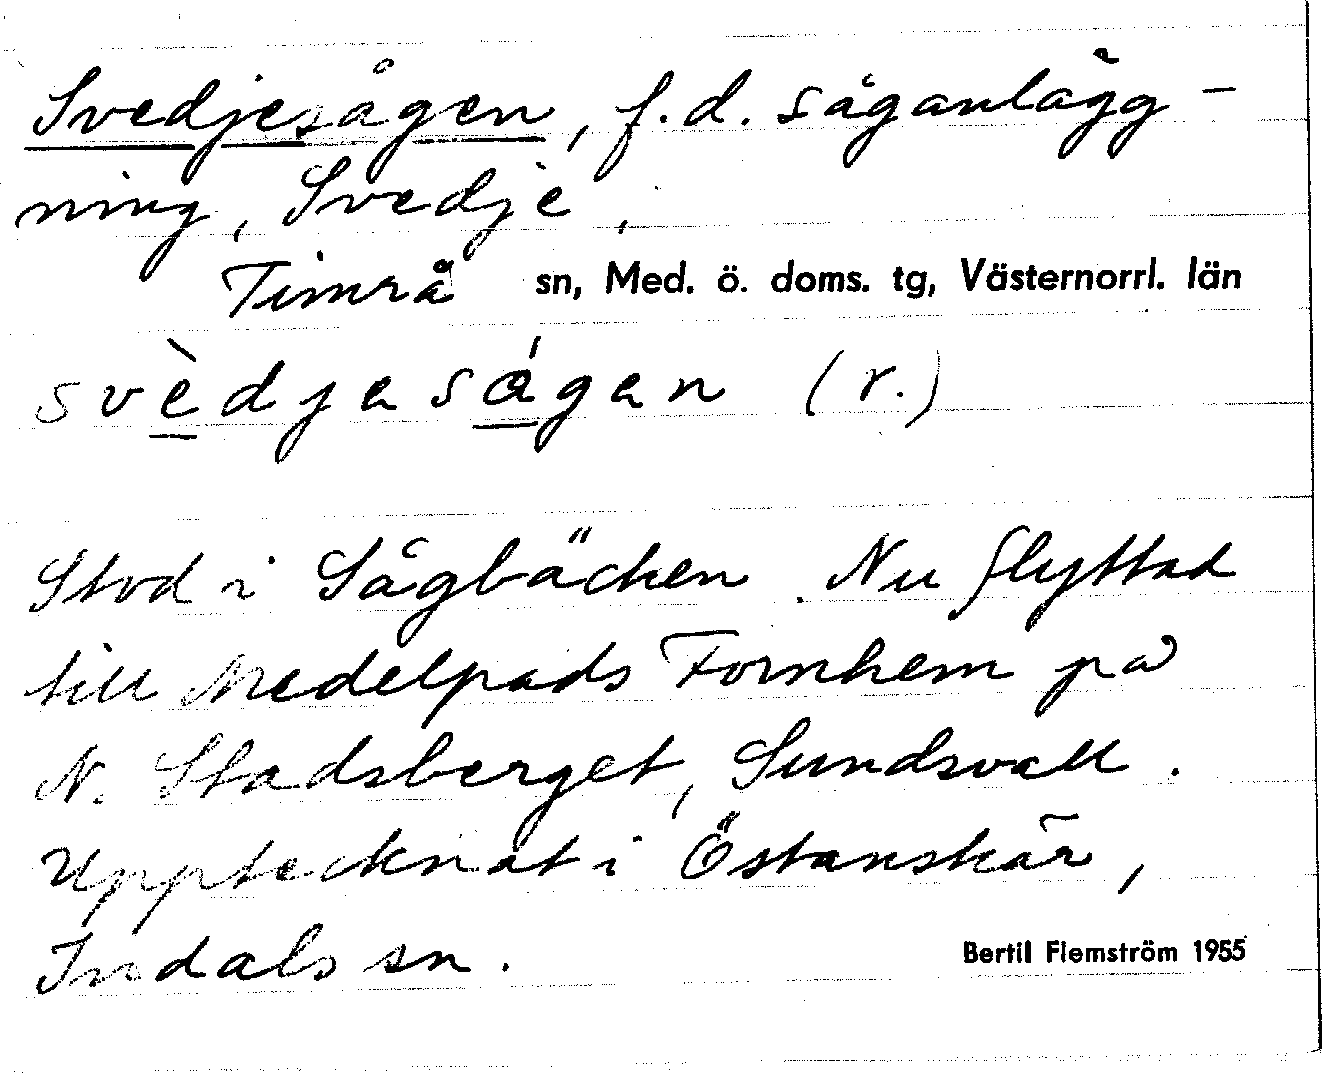 Svedjesågen, f.d. såganlägg-
ning, Svedje,
Timrå sn, Med. ö. doms. tg, Västernorrl. län
svèdjesågen (r.)
Stod i Sågbäcken. Nu flyttad
till Medelpads Fornhem på
N. Stadsberget, Sundsvall.
Upptecknat i Östanskär,
Indals sn.
Bertil Flemström 1955